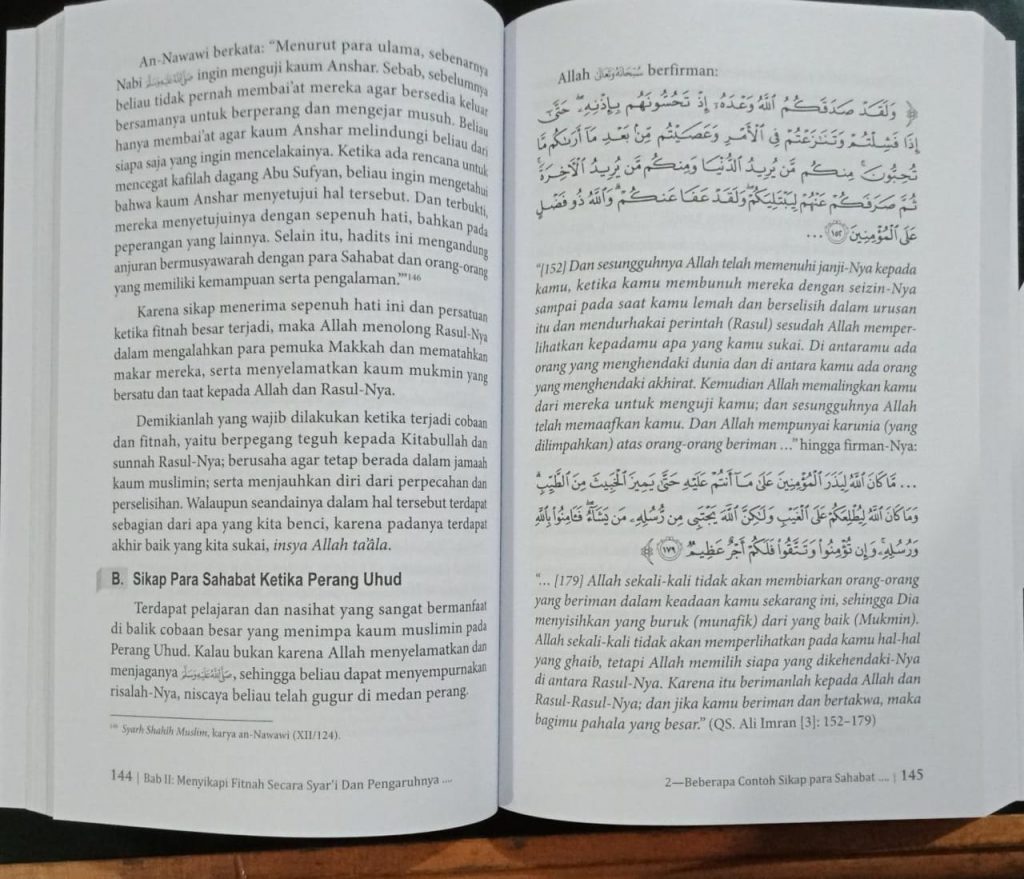 An-Nawawi berkata: “Menurut para ulama, sebenarnya
Nabi ﷺ ingin menguji kaum Anshar. Sebab, sebelumnya
beliau tidak pernah membai'at mereka agar bersedia keluar
bersamanya untuk berperang dan mengejar musuh. Beliau
hanya membai'at agar kaum Anshar melindungi beliau dari
siapa saja yang ingin mencelakainya. Ketika ada rencana untuk
mencegat kafilah dagang Abu Sufyan, beliau ingin mengetahui
bahwa kaum Anshar menyetujui hal tersebut. Dan terbukti,
mereka menyetujuinya dengan sepenuh hati, bahkan pada
peperangan yang lainnya. Selain itu, hadits ini mengandung
anjuran bermusyawarah dengan para Sahabat dan orang-orang
yang memiliki kemampuan serta pengalaman.'”146
Karena sikap menerima sepenuh hati ini dan persatuan
ketika fitnah besar terjadi, maka Allah menolong Rasul-Nya
dalam mengalahkan para pemuka Makkah dan mematahkan
makar mereka, serta menyelamatkan kaum mukmin yang
bersatu dan taat kepada Allah dan Rasul-Nya.
Demikianlah yang wajib dilakukan ketika terjadi cobaan
dan fitnah, yaitu berpegang teguh kepada Kitabullah dan
sunnah Rasul-Nya; berusaha agar tetap berada dalam jamaah
kaum muslimin; serta menjauhkan diri dari perpecahan dan
perselisihan. Walaupun seandainya dalam hal tersebut terdapat
sebagian dari apa yang kita benci, karena padanya terdapat
akhir baik yang kita sukai, insya Allah ta'âla.
B. Sikap Para Sahabat Ketika Perang Uhud
Terdapat pelajaran dan nasihat yang sangat bermanfaat
di balik cobaan besar yang menimpa kaum muslimin pada
Perang Uhud. Kalau bukan karena Allah menyelamatkan dan
menjaganya ﷺ, sehingga beliau dapat menyempurnakan
risalah-Nya, niscaya beliau telah gugur di medan perang.
146 Syarh Shahih Muslim, karya an-Nawawi (XII/124).
144 | Bab II: Menyikapi Fitnah Secara Syar'i Dan Pengaruhnya ....
Allah سُبْحَانَهُ وَتَعَالَى berfirman:
﴿ وَلَقَدْ صَدَقَكُمُ اللَّهُ وَعْدَهُۥٓ إِذْ تَحُسُّونَهُم بِإِذْنِهِۦ ۖ حَتَّىٰٓ
إِذَا فَشِلْتُمْ وَتَنَٰزَعْتُمْ فِي الْأَمْرِ وَعَصَيْتُم مِّنۢ بَعْدِ مَآ أَرَىٰكُم مَّا
تُحِبُّونَ ۚ مِنكُم مَّن يُرِيدُ الدُّنْيَا وَمِنكُم مَّن يُرِيدُ الْآخِرَةَ ۚ
ثُمَّ صَرَفَكُمْ عَنْهُمْ لِيَبْتَلِيَكُمْ ۖ وَلَقَدْ عَفَا عَنكُمْ ۗ وَاللَّهُ ذُو فَضْلٍ
عَلَى الْمُؤْمِنِينَ ١٥٢ ...
“[152] Dan sesungguhnya Allah telah memenuhi janji-Nya kepada
kamu, ketika kamu membunuh mereka dengan seizin-Nya
sampai pada saat kamu lemah dan berselisih dalam urusan
itu dan mendurhakai perintah (Rasul) sesudah Allah memper-
lihatkan kepadamu apa yang kamu sukai. Di antaramu ada
orang yang menghendaki dunia dan di antara kamu ada orang
yang menghendaki akhirat. Kemudian Allah memalingkan kamu
dari mereka untuk menguji kamu; dan sesungguhnya Allah
telah memaafkan kamu. Dan Allah mempunyai karunia (yang
dilimpahkan) atas orang-orang beriman ...” hingga firman-Nya:
... مَّا كَانَ اللَّهُ لِيَذَرَ الْمُؤْمِنِينَ عَلَىٰ مَآ أَنتُمْ عَلَيْهِ حَتَّىٰ يَمِيزَ الْخَبِيثَ مِنَ الطَّيِّبِ ۗ
وَمَا كَانَ اللَّهُ لِيُطْلِعَكُمْ عَلَى الْغَيْبِ وَلَٰكِنَّ اللَّهَ يَجْتَبِي مِن رُّسُلِهِۦ مَن يَشَآءُ ۖ فَـَٔامِنُوا بِاللَّهِ
وَرُسُلِهِۦ ۚ وَإِن تُؤْمِنُوا وَتَتَّقُوا فَلَكُمْ أَجْرٌ عَظِيمٌ ١٧٩ ﴾
“... [179] Allah sekali-kali tidak akan membiarkan orang-orang
yang beriman dalam keadaan kamu sekarang ini, sehingga Dia
menyisihkan yang buruk (munafik) dari yang baik (Mukmin).
Allah sekali-kali tidak akan memperlihatkan pada kamu hal-hal
yang ghaib, tetapi Allah memilih siapa yang dikehendaki-Nya
di antara Rasul-Nya. Karena itu berimanlah kepada Allah dan
Rasul-Rasul-Nya; dan jika kamu beriman dan bertakwa, maka
bagimu pahala yang besar.” (QS. Ali Imran [3]: 152–179)
2—Beberapa Contoh Sikap para Sahabat .... | 145